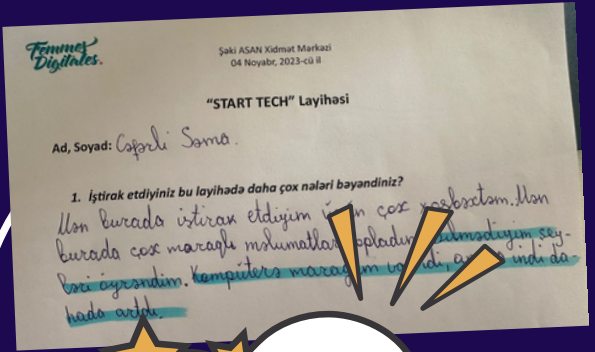 Femmes
Digitales.
Şəki ASAN Xidmət Mərkəzi
04 Noyabr, 2023-cü il
“START TECH” Layihəsi
Ad, Soyad: Cəfərli Səma.
1. İştirak etdiyiniz bu layihədə daha çox nələri bəyəndiniz?
Mən burada iştirak etdiyim çox xoşbəxtəm. Mən
burada çox maraqlı məlumatlar bilmədiyim şey-
ləri öyrəndim. Kompüterə indi da-
hada artdı.